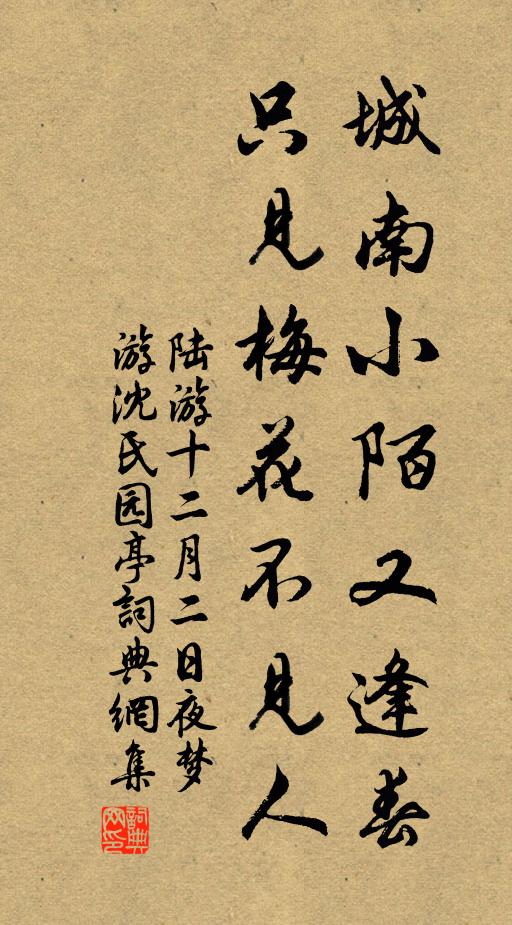 城南小陌又逢春
只见梅花不见人
陆游十二月二日夜梦
游沈氏园亭詞典網集
詞典网印